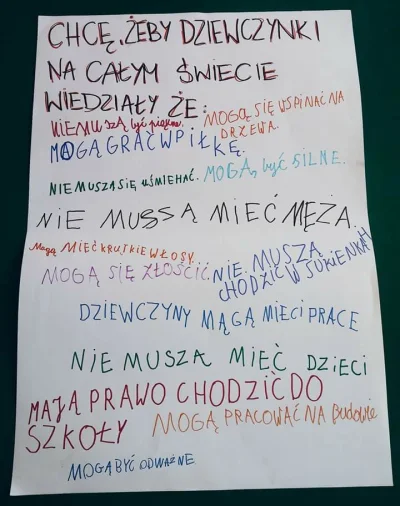 CHCĘ, ŻEBY DZIEWCZYNKI
NA CAŁYM ŚWIECIE
WIEDZIAŁY ŻE:
NIE MUSZĄ być piękne.
MOGĄ SIĘ WSPINAĆ NA
DRZEWA.
MAGĄ GRAĆ W PIŁKĘ.
NIE MUSZĄ SIĘ UŚMIEHAĆ.
MOGĄ, być SILNE.
NIE MUSSĄ MIEĆ MĘŻA.
Magą MIEĆ KRUTKIE WŁOSY.
MOGĄ SIĘ ZŁOŚCIĆ.
NIE MUSZĄ
CHODZIĆ W SUKIENKAH
DZIEWCZYNY MĄGĄ MIECI PRACE
NIE MUSZĄ MIEĆ DZIECI
MAJĄ PRAWO CHODZIĆ DO
SZKOŁY
MOGĄ PRACOWAĆ NA Budowie
MOGĄ BYĆ ODWAŻNE